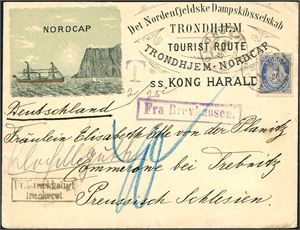 NORDCAP
Det Nordenfjeldske Dampskibsselskab
TRONDHJEM
TOURIST ROUTE
TRONDHJEM-NORDCAP
SS. KONG HARALD
T
Deutschland
Fra Brevkassen.
Fräulein Elisabeth von der Planitz
bei Trebnitz
Utilstrækkeligt
frankeret
Preussisch Schlesien.